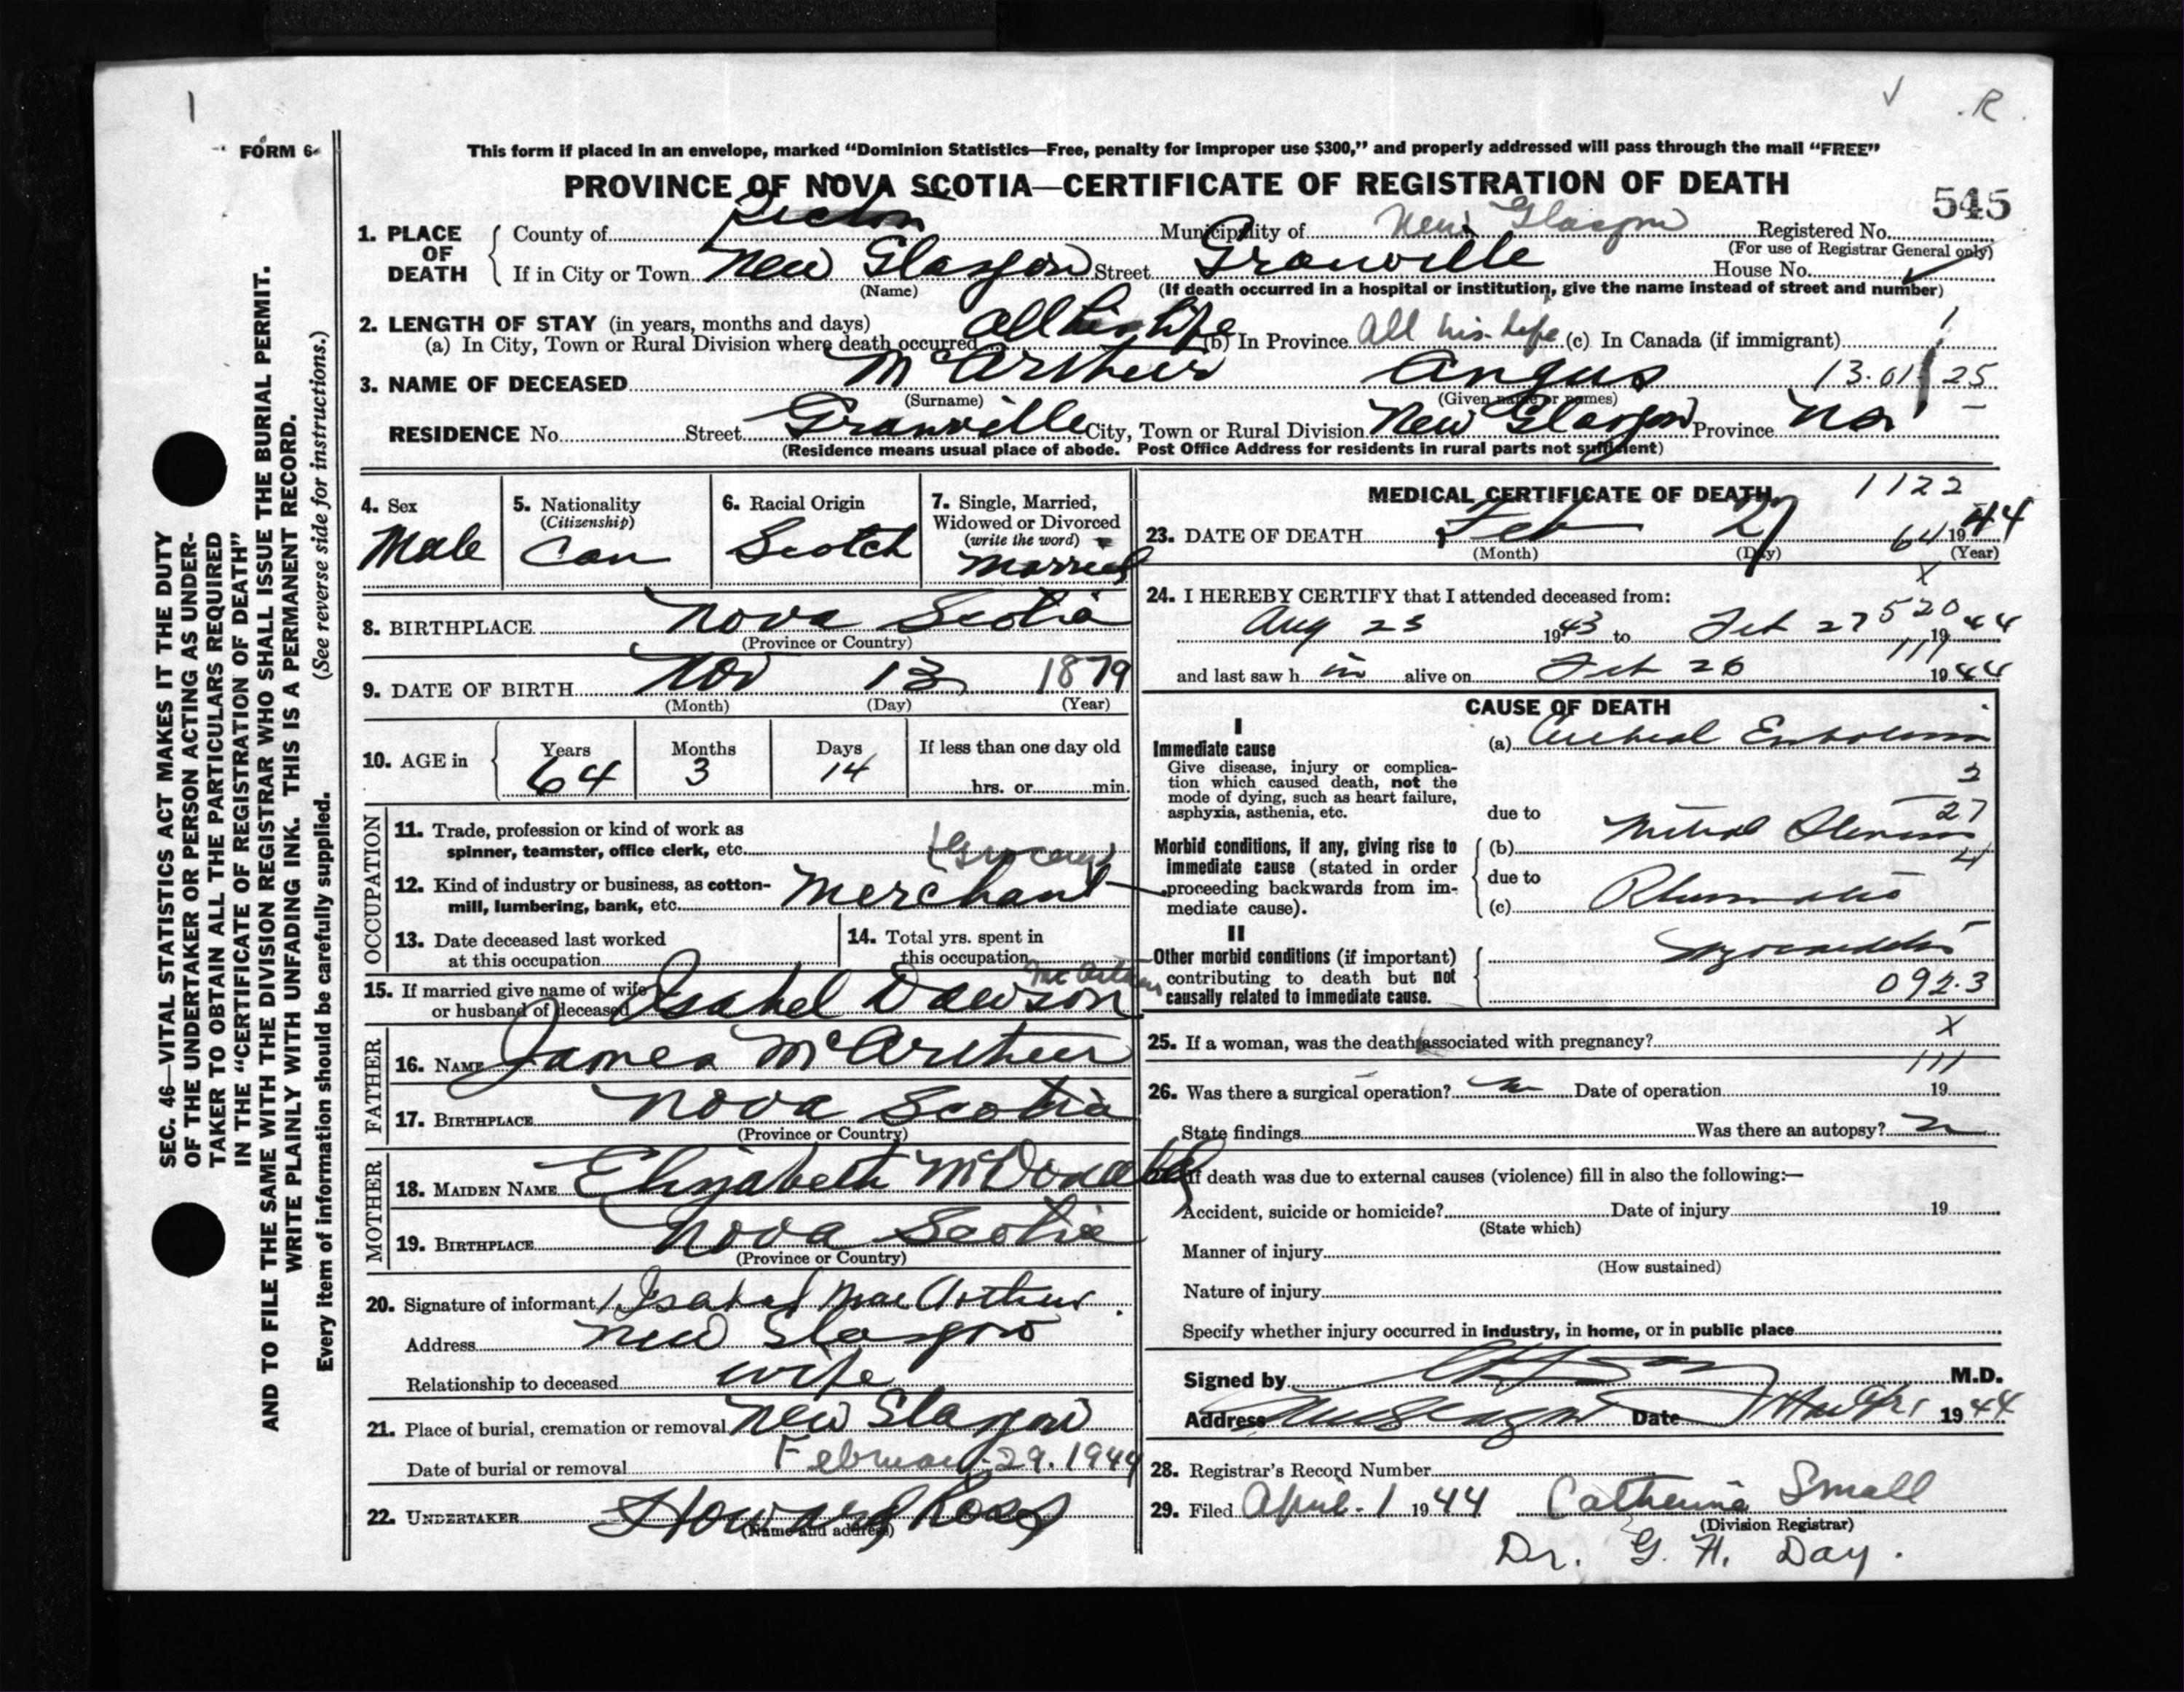 1
✓ R
FORM 6
This form if placed in an envelope, marked “Dominion Statistics—Free, penalty for improper use $300,” and properly addressed will pass through the mail “FREE”
PROVINCE OF NOVA SCOTIA—CERTIFICATE OF REGISTRATION OF DEATH
545
1. PLACE OF DEATH
County of Pictou Municipality of New Glasgow Registered No.
(For use of Registrar General only)
If in City or Town New Glasgow Street Granville House No.
(Name) (If death occurred in a hospital or institution, give the name instead of street and number)
2. LENGTH OF STAY (in years, months and days)
(a) In City, Town or Rural Division where death occurred All his life (b) In Province All his life (c) In Canada (if immigrant)
3. NAME OF DECEASED McArthur Angus 13.01 25
(Surname) (Given name or names)
RESIDENCE No. Street Granville City, Town or Rural Division New Glasgow Province N.S.
(Residence means usual place of abode. Post Office Address for residents in rural parts not sufficient)
4. Sex
Male
5. Nationality
(Citizenship)
Can
6. Racial Origin
Scotch
7. Single, Married,
Widowed or Divorced
(write the word)
Married
8. BIRTHPLACE Nova Scotia
(Province or Country)
9. DATE OF BIRTH Nov 13 1879
(Month) (Day) (Year)
10. AGE in Years Months Days If less than one day old
64 3 14 hrs. or min.
OCCUPATION
11. Trade, profession or kind of work as
spinner, teamster, office clerk, etc. (Grocery)
12. Kind of industry or business, as cotton-
mill, lumbering, bank, etc. Merchant
13. Date deceased last worked
at this occupation
14. Total yrs. spent in
this occupation
15. If married give name of wife
or husband of deceased Isabel Dawson McArthur
FATHER
16. NAME James McArthur
17. BIRTHPLACE Nova Scotia
(Province or Country)
MOTHER
18. MAIDEN NAME Elizabeth McDonald
19. BIRTHPLACE Nova Scotia
(Province or Country)
20. Signature of informant Isabel MacArthur.
Address New Glasgow
Relationship to deceased wife
21. Place of burial, cremation or removal New Glasgow
Date of burial or removal February 29. 1944
22. UNDERTAKER Howard Ross
(Name and address)
MEDICAL CERTIFICATE OF DEATH 1122
23. DATE OF DEATH Feb 27 64 1944
(Month) (Day) (Year)
X
24. I HEREBY CERTIFY that I attended deceased from:
520
Aug 25 1943 to Feb 27 1944
111
and last saw h im alive on Feb 26 1944
CAUSE OF DEATH
I
Immediate cause
Give disease, injury or complica-
tion which caused death, not the
mode of dying, such as heart failure,
asphyxia, asthenia, etc.
(a) Embolism
2
27
due to
Morbid conditions, if any, giving rise to
immediate cause (stated in order
proceeding backwards from im-
mediate cause).
(b) Mitral Stenosis
4
due to
(c) Rheumatic
II
Other morbid conditions (if important)
contributing to death but not
causally related to immediate cause.
Myocarditis
092.3
25. If a woman, was the death associated with pregnancy? X
111
26. Was there a surgical operation? no Date of operation 19
State findings Was there an autopsy? no
If death was due to external causes (violence) fill in also the following:—
Accident, suicide or homicide? Date of injury 19
(State which)
Manner of injury
(How sustained)
Nature of injury
Specify whether injury occurred in industry, in home, or in public place
Signed by M.D.
Address New Glasgow Date 1944
28. Registrar's Record Number
29. Filed April 1 1944 Catherine Small
(Division Registrar)
Dr. G. H. Day.
SEC. 46—VITAL STATISTICS ACT MAKES IT THE DUTY
OF THE UNDERTAKER OR PERSON ACTING AS UNDER-
TAKER TO OBTAIN ALL THE PARTICULARS REQUIRED
IN THE “CERTIFICATE OF REGISTRATION OF DEATH”
AND TO FILE THE SAME WITH THE DIVISION REGISTRAR WHO SHALL ISSUE THE BURIAL PERMIT.
WRITE PLAINLY WITH UNFADING INK. THIS IS A PERMANENT RECORD.
Every item of information should be carefully supplied. (See reverse side for instructions.)